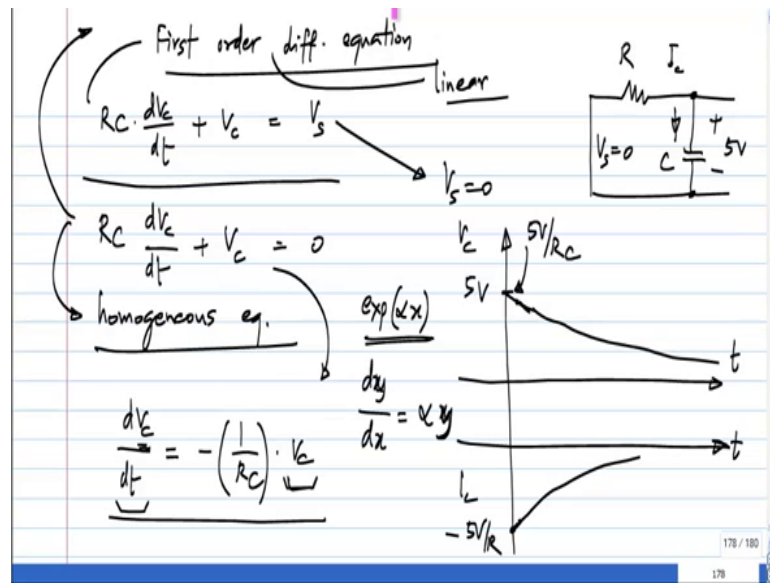 First order diff. equation
linear
RC · dVc/dt + Vc = Vs
Vs=0
RC dVc/dt + Vc = 0
homogeneous eq.
dVc/dt = -(1/RC) · Vc
exp(αx)
dy/dx = αy
R Ic
Vs=0 C + 5V -
Vc 5V/RC
5V
t
t
Ic
-5V/R
178 / 180
178